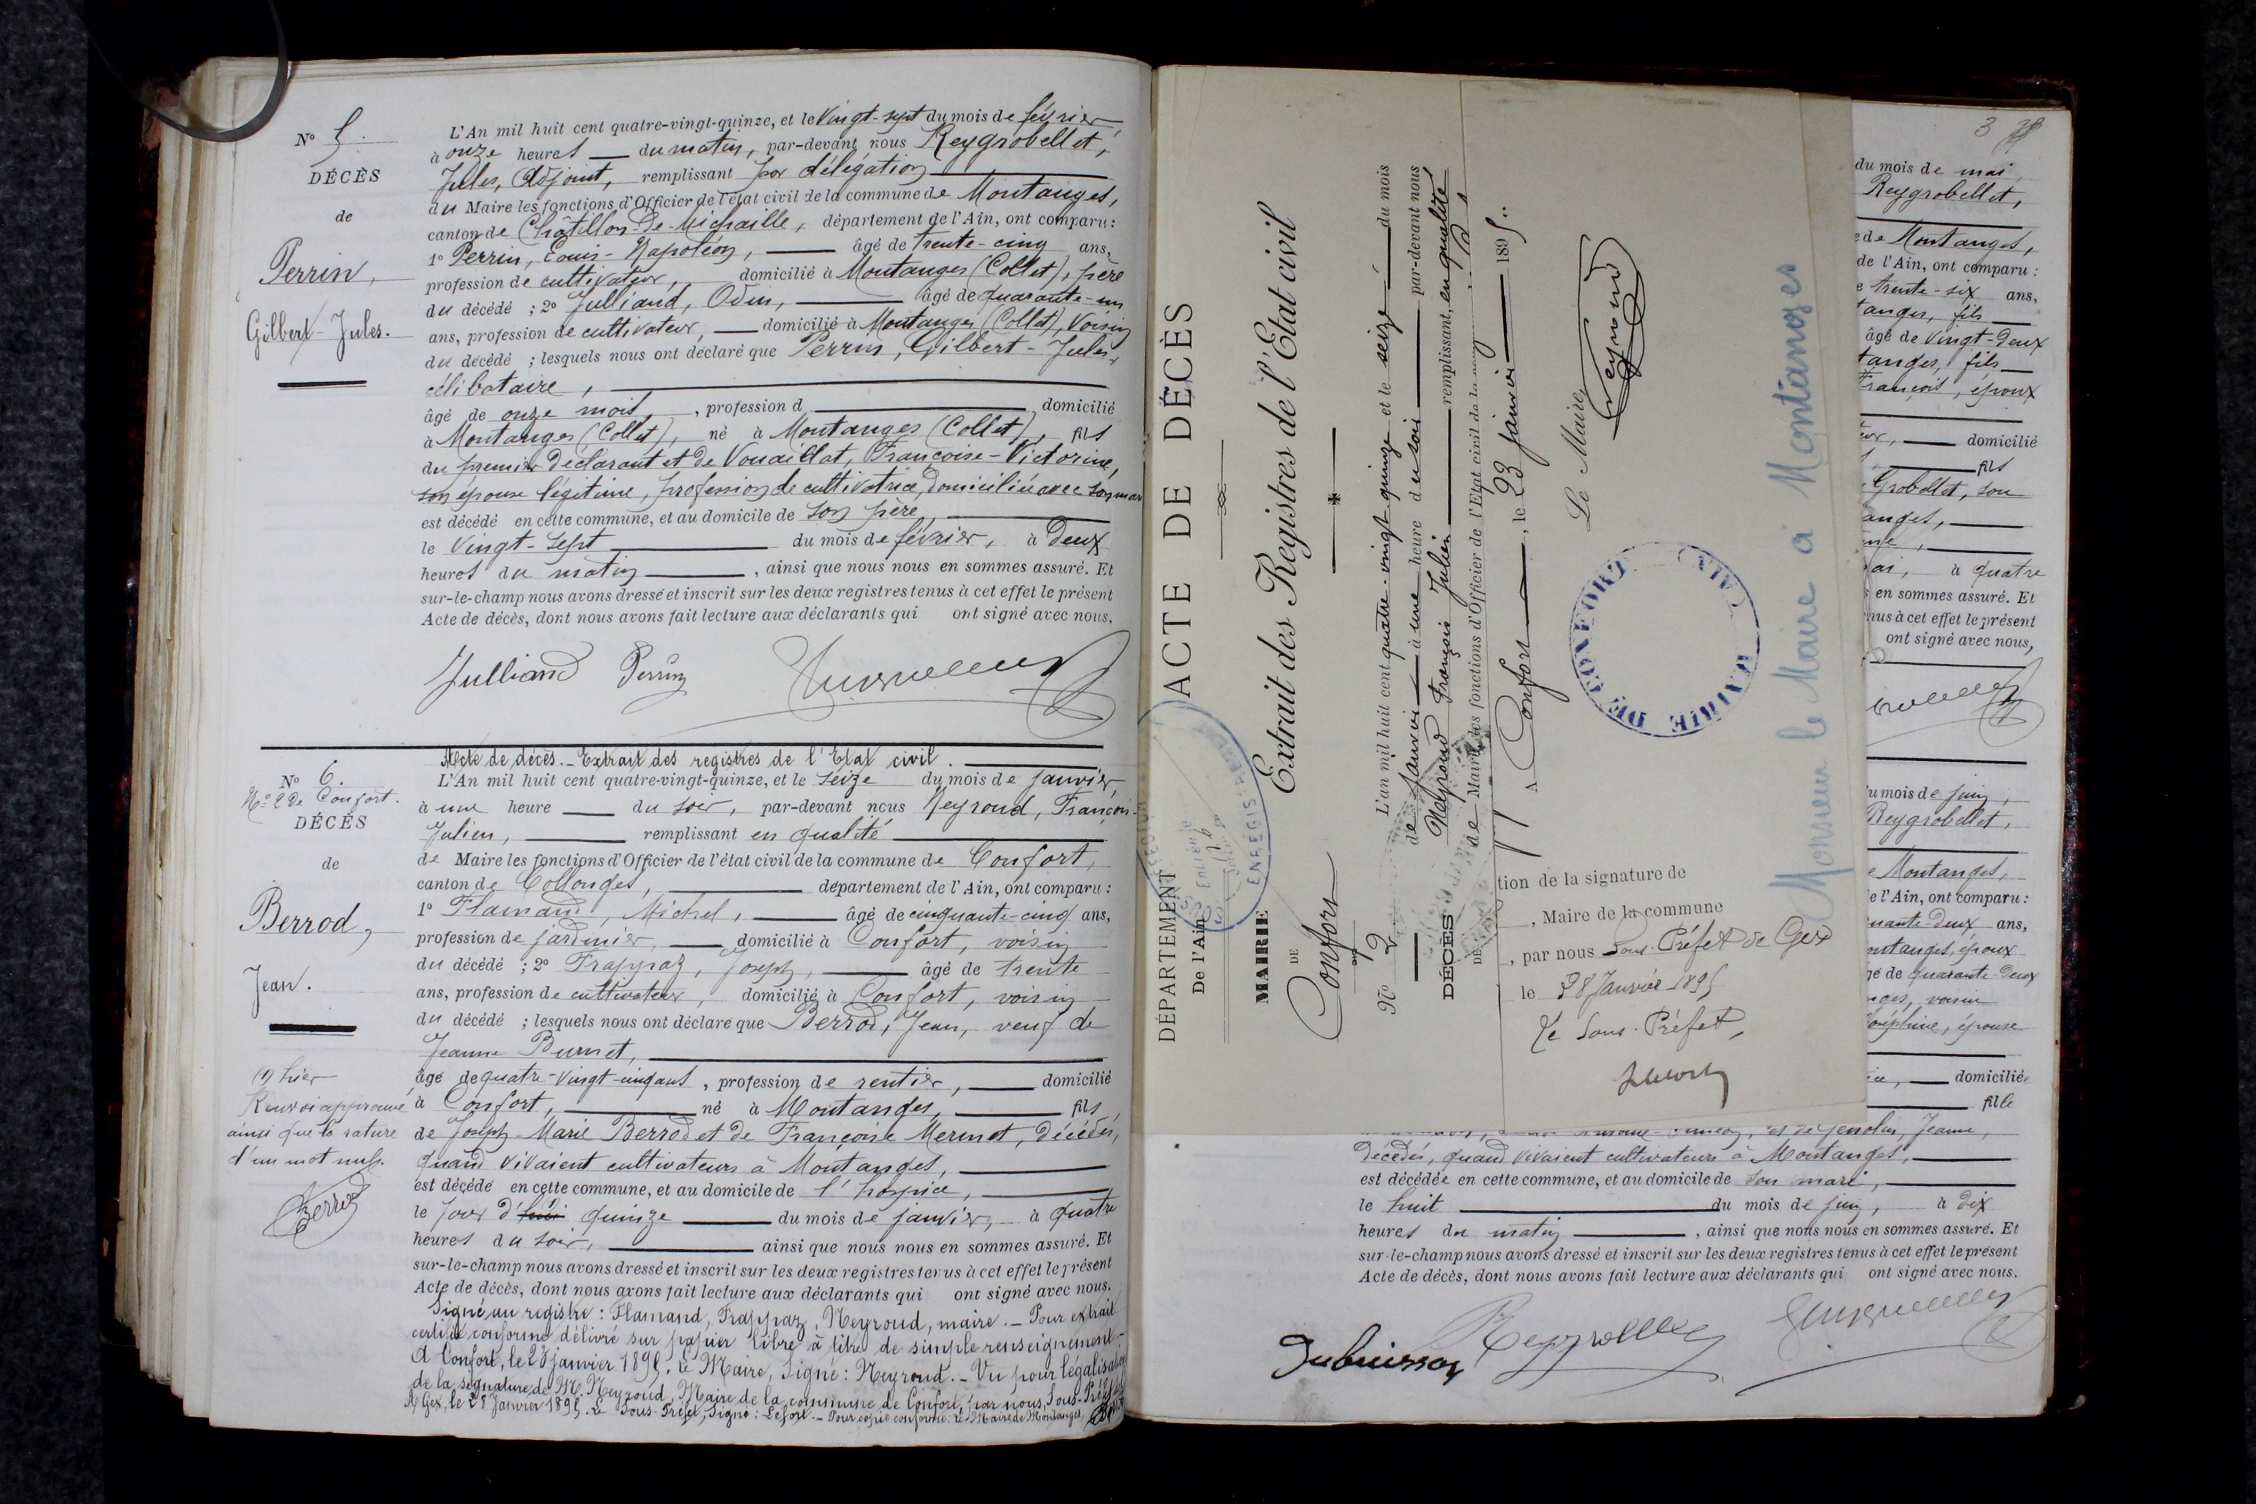 N° 5.
DÉCÈS
de
Perrin,
Gilbert-Jules.
L'An mil huit cent quatre-vingt-quinze, et le vingt-sept du mois de février,
à onze heures du matin, par-devant nous Reygrobellet,
Jules, Adjoint, remplissant par délégation
du Maire les fonctions d'Officier de l'état civil de la commune de Montanges,
canton de Châtillon-de-Michaille, département de l'Ain, ont comparu:
1° Perrin, Louis-Napoléon, âgé de trente-cinq ans,
profession de cultivateur, domicilié à Montanges (Collet), père
du décédé ; 2° Julliand, Odin, âgé de quarante-un
ans, profession de cultivateur, domicilié à Montanges (Collet), voisin
du décédé ; lesquels nous ont déclaré que Perrin, Gilbert-Jules,
célibataire,
âgé de onze mois, profession d domicilié
à Montanges (Collet), né à Montanges (Collet), fils
du premier déclarant et de Vouaillat, Françoise-Victorine,
son épouse légitime, profession de cultivatrice, domiciliée avec son mari
est décédé en cette commune, et au domicile de son père,
le vingt-sept du mois de février, à deux
heures du matin, ainsi que nous nous en sommes assuré. Et
sur-le-champ nous avons dressé et inscrit sur les deux registres tenus à cet effet le présent
Acte de décès, dont nous avons fait lecture aux déclarants qui ont signé avec nous.
Julliand Perrin
Acte de décès. - Extrait des registres de l'Etat civil.
N° 6.
N° 2 de Confort.
DÉCÈS
de
Berrod,
Jean.
(1) hier
Renvoi approuvé
ainsi que la rature
d'un mot nul.
Berrod
L'An mil huit cent quatre-vingt-quinze, et le seize du mois de janvier,
à une heure du soir, par-devant nous Neyroud, François-
Julien, remplissant en qualité
de Maire les fonctions d'Officier de l'état civil de la commune de Confort,
canton de Collonges, département de l'Ain, ont comparu:
1° Flamand, Michel, âgé de cinquante-cinq ans,
profession de jardinier, domicilié à Confort, voisin
du décédé ; 2° Frappaz, Joseph, âgé de trente
ans, profession de cultivateur, domicilié à Confort, voisin
du décédé ; lesquels nous ont déclaré que Berrod, Jean, veuf de
Jeanne Burnet,
âgé de quatre-vingt-cinq ans, profession de rentier, domicilié
à Confort, né à Montanges, fils
de Joseph-Marie Berrod et de Françoise Mermet, décédés,
quand vivaient cultivateurs à Montanges,
est décédé en cette commune, et au domicile de l'hospice,
le jour d' quinze du mois de janvier, à quatre
heures du soir, ainsi que nous nous en sommes assuré. Et
sur-le-champ nous avons dressé et inscrit sur les deux registres tenus à cet effet le présent
Acte de décès, dont nous avons fait lecture aux déclarants qui ont signé avec nous.
Signé au registre : Flamand, Frappaz, Neyroud, maire. - Pour extrait
certifié conforme délivré sur papier libre à titre de simple renseignement -
A Confort, le 23 janvier 1895. Le Maire, Signé : Neyroud. - Vu pour légalisation
de la signature de M. Neyroud, Maire de la commune de Confort, par nous, Sous-Préfet
A Gex, le 28 Janvier 1895. Le Sous-Préfet, Signé : Lefort. - Pour copie conforme : Le Maire de Montanges,
DÉPARTEMENT
De l'Ain
MAIRIE
DE
Confort
N° 2
DÉCÈS
ACTE DE DÉCÈS
Extrait des Registres de l'Etat civil
L'an mil huit cent quatre-vingt-quinze et le seize du mois
de janvier à une heure du soir par-devant nous
Neyroud François Julien remplissant, en qualité
de Maire, les fonctions d'Officier de l'Etat civil de la
A Confort, le 23 janvier 1895.
Le Maire,
Neyroud
MAIRIE DE CONFORT (AIN)
Monsieur le Maire à Montanges
tion de la signature de
, Maire de la commune
, par nous Sous-Préfet de Gex
le 28 Janvier 1895
Le Sous-Préfet,
3
du mois de mai
Reygrobellet,
de Montanges,
de l'Ain, ont comparu :
trente-six ans,
fils
âgé de vingt-deux
fils
François, époux
domicilié
fils
Grobellet, son
à quatre
en sommes assuré. Et
à cet effet le présent
ont signé avec nous,
du mois de juin,
Reygrobellet,
Montanges,
de l'Ain, ont comparu :
ans,
époux
de quarante-deux
voisin
épouse
domiciliée
fille
Jeanne,
décédés, quand vivaient cultivateurs à Montanges,
est décédée en cette commune, et au domicile de son mari,
le huit du mois de juin, à dix
heures du matin, ainsi que nous nous en sommes assuré. Et
sur-le-champ nous avons dressé et inscrit sur les deux registres tenus à cet effet le présent
Acte de décès, dont nous avons fait lecture aux déclarants qui ont signé avec nous.
Dubuisson